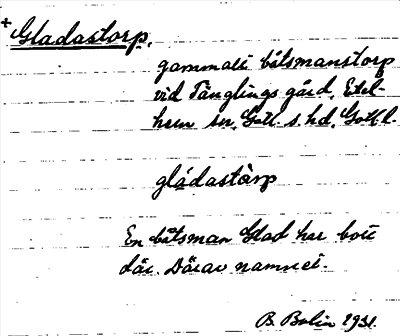 +
Gladastorp,
gammalt båtsmanstorp
vid Tänglings gård, Etel-
hem sn, Gotl. s. hd. Gotl.
gládastàrp
En båtsman Glad har bott
där. Därav namnet.
B. Bolin 1931.